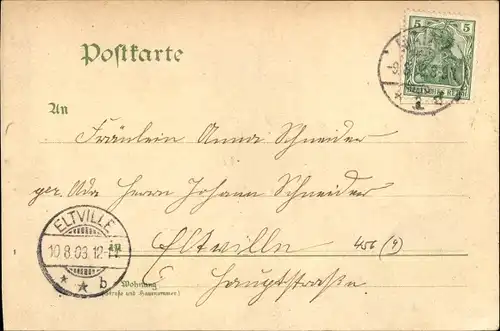 Postkarte
5 5
An
Fräulein Anna Schneider
per Adr. Herrn Johann Schneider
ELTVILLE
10.8.03.12-
* * b
in
Eltville 456 (9)
Hauptstraße
Wohnung
(Straße und Hausnummer)